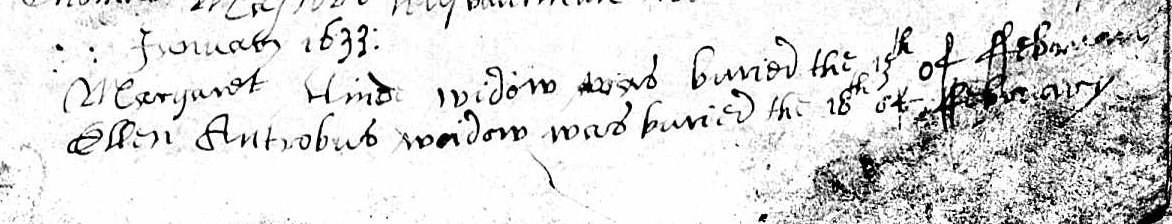 January 1633:
Margaret Hinde widow was buried the 15th of ffebruary
Ellen Antrobus widow was buried the 18th of ffebruary